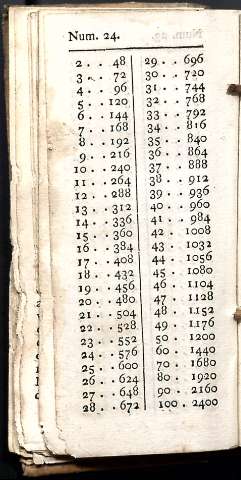 Num. 24.
2 . . 48
3 . . 72
4 . . 96
5 . . 120
6 . . 144
7 . . 168
8 . . 192
9 . . 216
10 . . 240
11 . . 264
12 . . 288
13 . . 312
14 . . 336
15 . . 360
16 . . 384
17 . . 408
18 . . 432
19 . . 456
20 . . 480
21 . . 504
22 . . 528
23 . . 552
24 . . 576
25 . . 600
26 . . 624
27 . . 648
28 . . 672
29 . . 696
30 . . 720
31 . . 744
32 . . 768
33 . . 792
34 . . 816
35 . . 840
36 . . 864
37 . . 888
38 . . 912
39 . . 936
40 . . 960
41 . . 984
42 . . 1008
43 . . 1032
44 . . 1056
45 . . 1080
46 . . 1104
47 . . 1128
48 . . 1152
49 . . 1176
50 . . 1200
60 . . 1440
70 . . 1680
80 . . 1920
90 . . 2160
100 . . 2400